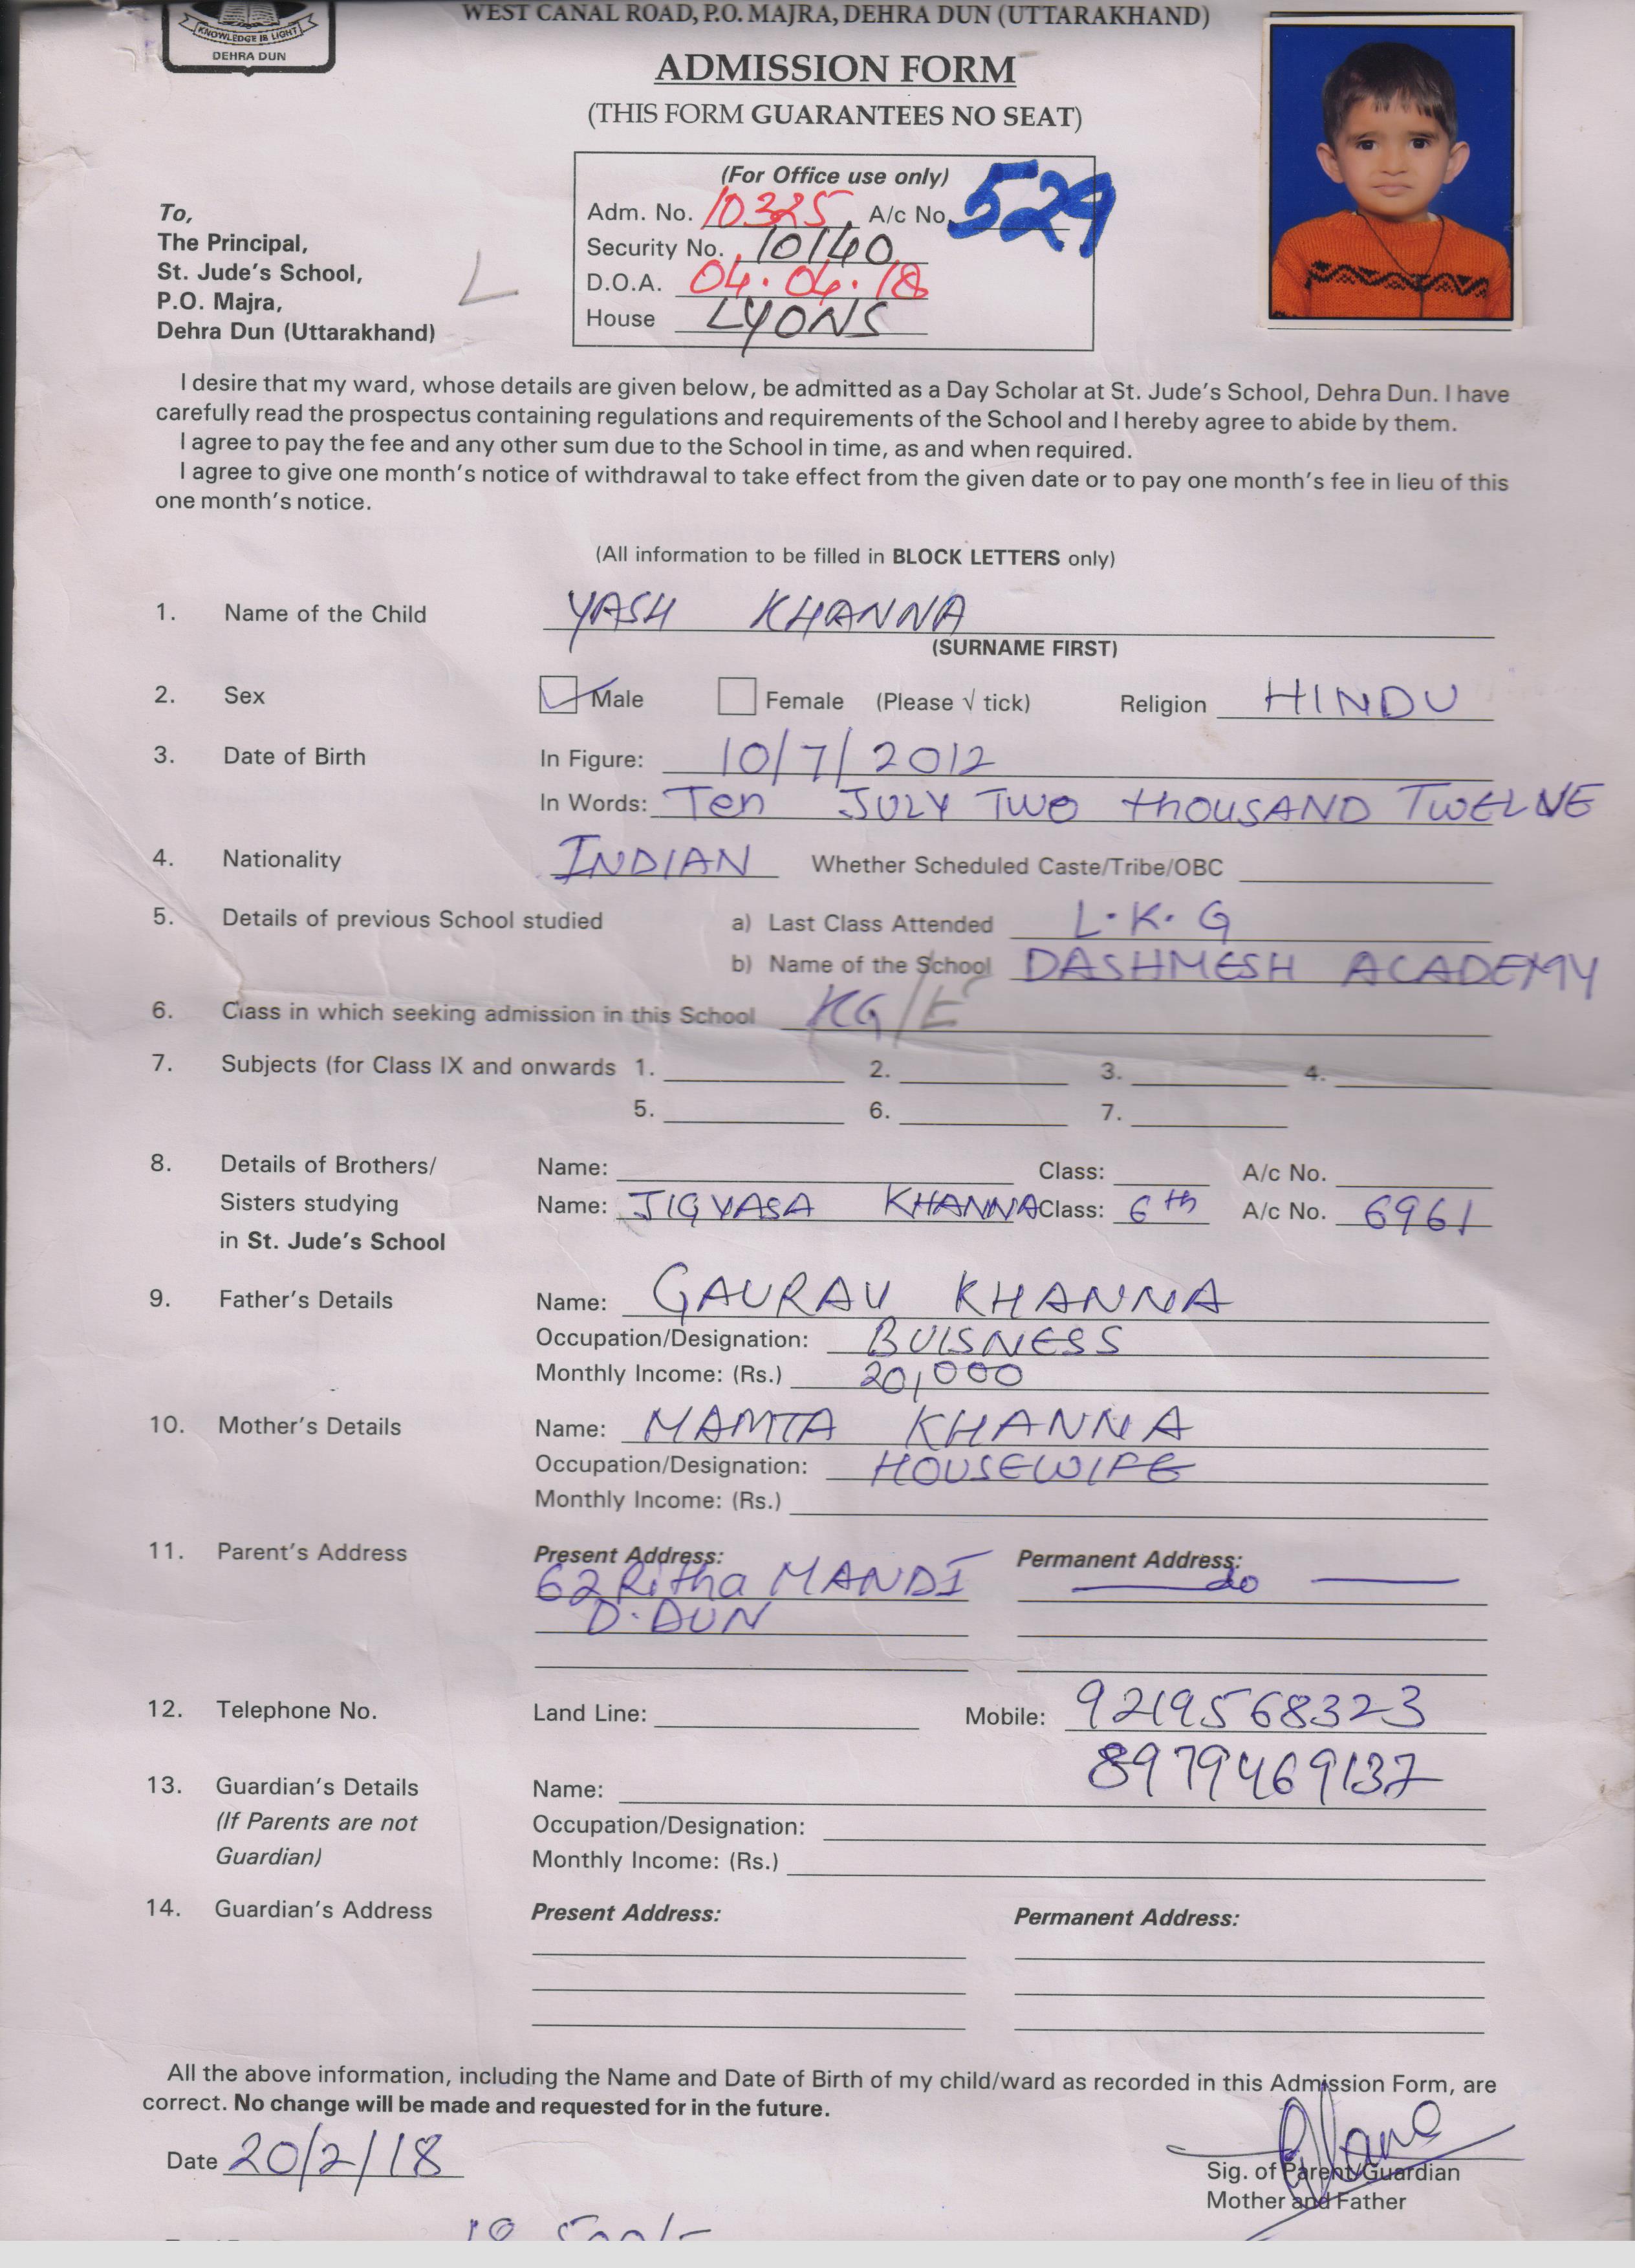 WEST CANAL ROAD, P.O. MAJRA, DEHRA DUN (UTTARAKHAND)
KNOWLEDGE IS LIGHT
DEHRA DUN
ADMISSION FORM
(THIS FORM GUARANTEES NO SEAT)
(For Office use only)
Adm. No. 10325 A/c No. 529
Security No. 10140
D.O.A. 04.04.18
House LYONS
To,
The Principal,
St. Jude's School,
P.O. Majra,
Dehra Dun (Uttarakhand)
L
I desire that my ward, whose details are given below, be admitted as a Day Scholar at St. Jude's School, Dehra Dun. I have
carefully read the prospectus containing regulations and requirements of the School and I hereby agree to abide by them.
I agree to pay the fee and any other sum due to the School in time, as and when required.
I agree to give one month's notice of withdrawal to take effect from the given date or to pay one month's fee in lieu of this
one month's notice.
(All information to be filled in BLOCK LETTERS only)
1. Name of the Child YASH KHANNA
(SURNAME FIRST)
2. Sex Male Female (Please √ tick) Religion HINDU
3. Date of Birth In Figure: 10/7/2012
In Words: Ten JULY TWO thOUSAND TWELVE
4. Nationality INDIAN Whether Scheduled Caste/Tribe/OBC
5. Details of previous School studied a) Last Class Attended L.K.G
b) Name of the School DASHMESH ACADEMY
6. Class in which seeking admission in this School KG/E
7. Subjects (for Class IX and onwards 1. 2. 3. 4.
5. 6. 7.
8. Details of Brothers/ Name: Class: A/c No.
Sisters studying Name: JIGYASA KHANNA Class: 6th A/c No. 6961
in St. Jude's School
9. Father's Details Name: GAURAV KHANNA
Occupation/Designation: BUISNESS
Monthly Income: (Rs.) 20,000
10. Mother's Details Name: MAMTA KHANNA
Occupation/Designation: HOUSEWIFE
Monthly Income: (Rs.)
11. Parent's Address Present Address: Permanent Address:
62 Ritha MANDI do
D.DUN
12. Telephone No. Land Line: Mobile: 9219568323
8979469137
13. Guardian's Details Name:
(If Parents are not Occupation/Designation:
Guardian) Monthly Income: (Rs.)
14. Guardian's Address Present Address: Permanent Address:
All the above information, including the Name and Date of Birth of my child/ward as recorded in this Admission Form, are
correct. No change will be made and requested for in the future.
Date 20/2/18
Sig. of Parent/Guardian
Mother and Father